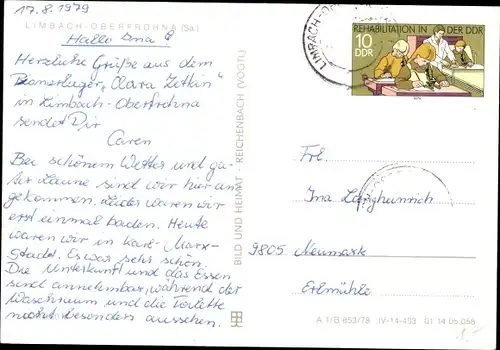 17.8.1979
LIMBACH-OBERFROHNA (Sa.)
Hallo Ina!
Herzliche Grüße aus dem
Pionierlager „Clara Zetkin"
in Limbach-Oberfrohna
sendet Dir
Caren
Bei schönem Wetter und gu-
ter Laune sind wir hier an-
gekommen. Leider waren wir
erst einmal baden. Heute
waren wir in Karl-Marx-
Stadt. Es war sehr schön.
Die Unterkunft und das Essen
sind annehmbar, während der
Waschraum und die Toilette
nicht besonders aussehen.
BILD UND HEIMAT REICHENBACH (VOGTL)
REHABILITATION IN DER DDR
10
DDR
LIMBACH-O
Frl.
Ina Langheinrich
9805 Neumark
Erlmühle
A 1/B 853/78 IV-14-483 01 14 05 058